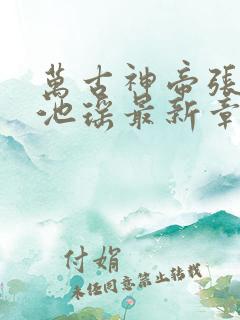 萬古神帝張
池瑤最新章
付娟
未经同意禁止转载